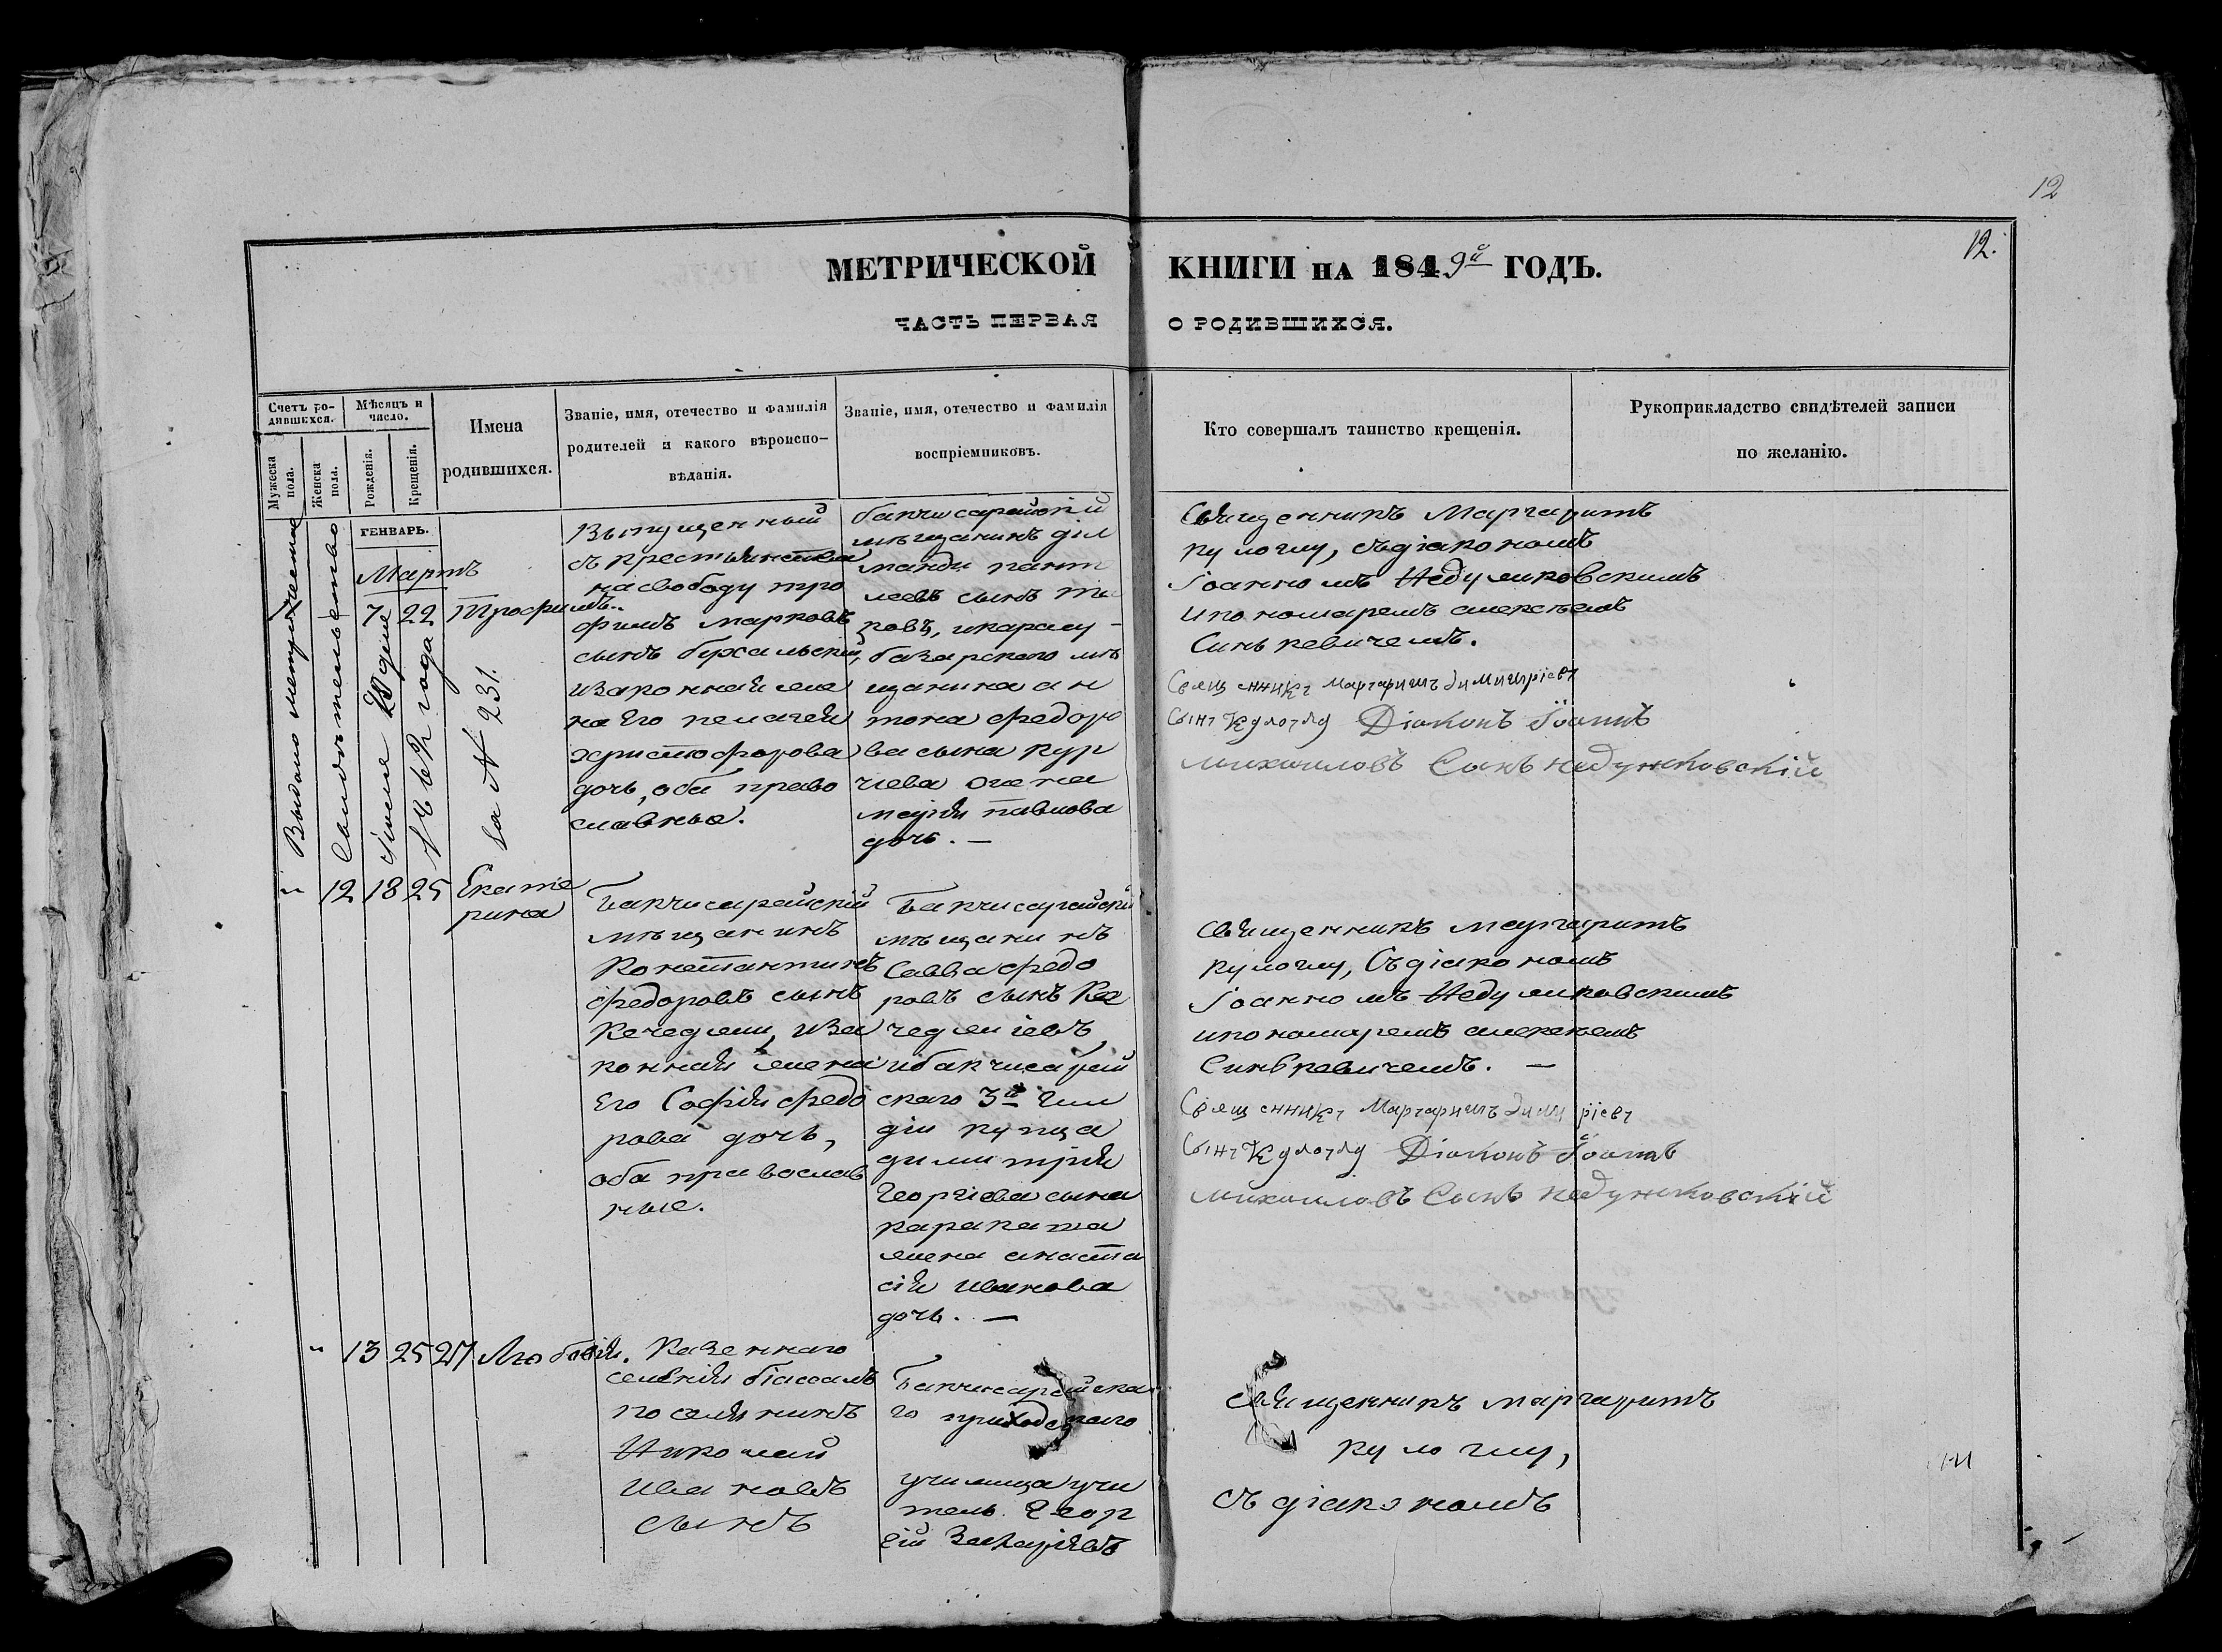 12
12.
МЕТРИЧЕСКОЙ КНИГИ НА 1849й ГОДЪ.
ЧАСТЬ ПЕРВАЯ О РОДИВШИХСЯ.
Счетъ ро-
дившихся.
Мужеска
пола.
Женска
пола.
Мѣсяцъ и
число.
Рожденія.
Крещенія.
Имена
родившихся.
Званіе, имя, отечество и фамилія
родителей и какого вѣроиспо-
вѣданія.
Званіе, имя, отечество и фамилія
воспріемниковъ.
Кто совершалъ таинство крещенія.
Рукоприкладство свидѣтелей записи
по желанію.
ГЕНВАРЬ.
Мартъ
7 22 Трофимъ..
Выдано метрическое
свидѣтельство
Іюня 20 дня
года
за № 231.
Выпущенный
съ крестьянства
на свободу тро
фимъ марковъ
сынъ бухальскій,
изаконная жена
на Его пелагея
христофорова
дочь, оба право
славные.
бакчисарайскій
мѣщанинъ
сынъ
ровъ, икарасу-
базарскаго мѣ
щанина ан
тона федоро
ва сына кур
чева жена
марія павлова
дочь. —
Священникъ Маргаритъ
кулоглу, съдіакономъ
Іоанномъ Недзелковскимъ
ипономаремъ алексѣемъ
Синькевичемъ.
Священникъ Маргаритъ Димитріевъ
сынъ Кулоглу Діаконъ Іоаннъ
михаиловъ Сынъ
12 18 25 Екате
рина
Бакчисарайскій
мѣщанинъ
Константинъ
федоровъ сынъ
Кечеджи, иза
конная жена
Его Софія федо
рова дочь,
оба православ
ные.
Бакчисарайскій
мѣщанинъ
Савва федо
ровъ сынъ Ке
чеджіевъ,
ибакчисарай
скаго 3й гил
діи купца
димитрія
Георгіева сына
каракаша
жена анаста
сія иванова
дочь. —
священникъ маргаритъ
кулоглу, Съдіакономъ
Іоанномъ Недзелковскимъ
ипономаремъ алексѣемъ
Синькевичемъ. —
Священникъ Маргаритъ Димитріевъ
сынъ Кулоглу Діаконъ Іоаннъ
михаиловъ Сынъ
13 25 27 Любовія.
Казеннаго
селенія біасалъ
поселянинъ
Николай
ивановъ
сынъ
Бакчисарайска
го приходскаго
училища учи
тель Геор
гій Захаріевъ
священникъ маргаритъ
кулоглу,
съ діакономъ